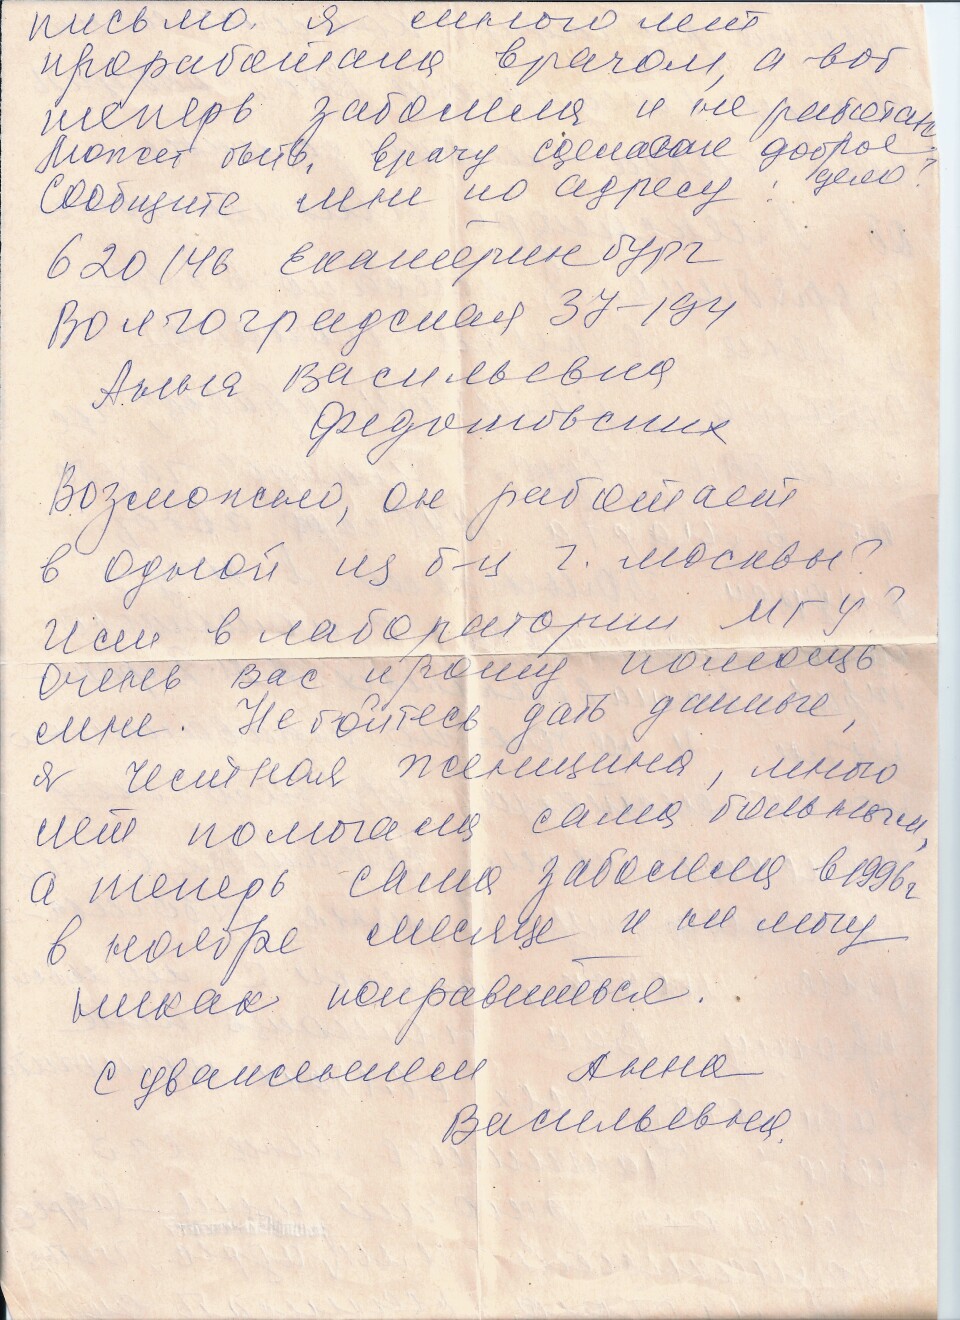 письмо. Я много лет
проработала врачом, а вот
теперь заболела и не работаю.
Может быть, врачу сделаете доброе
дело?
Сообщите мне по адресу:
620146 Екатеринбург
Волгоградская 37-194
Анна Васильевна
Федотовских
Возможно, он работает
в одной из б-ц г. Москвы?
Или в лаборатории МГУ?
Очень Вас прошу помощь
мне. Не бойтесь дать данные,
я честная женщина, много
лет помогала сама больным,
а теперь сама заболела в 1996г
в ноябре месяце и не могу
никак поправиться.
С уважением Анна
Васильевна.